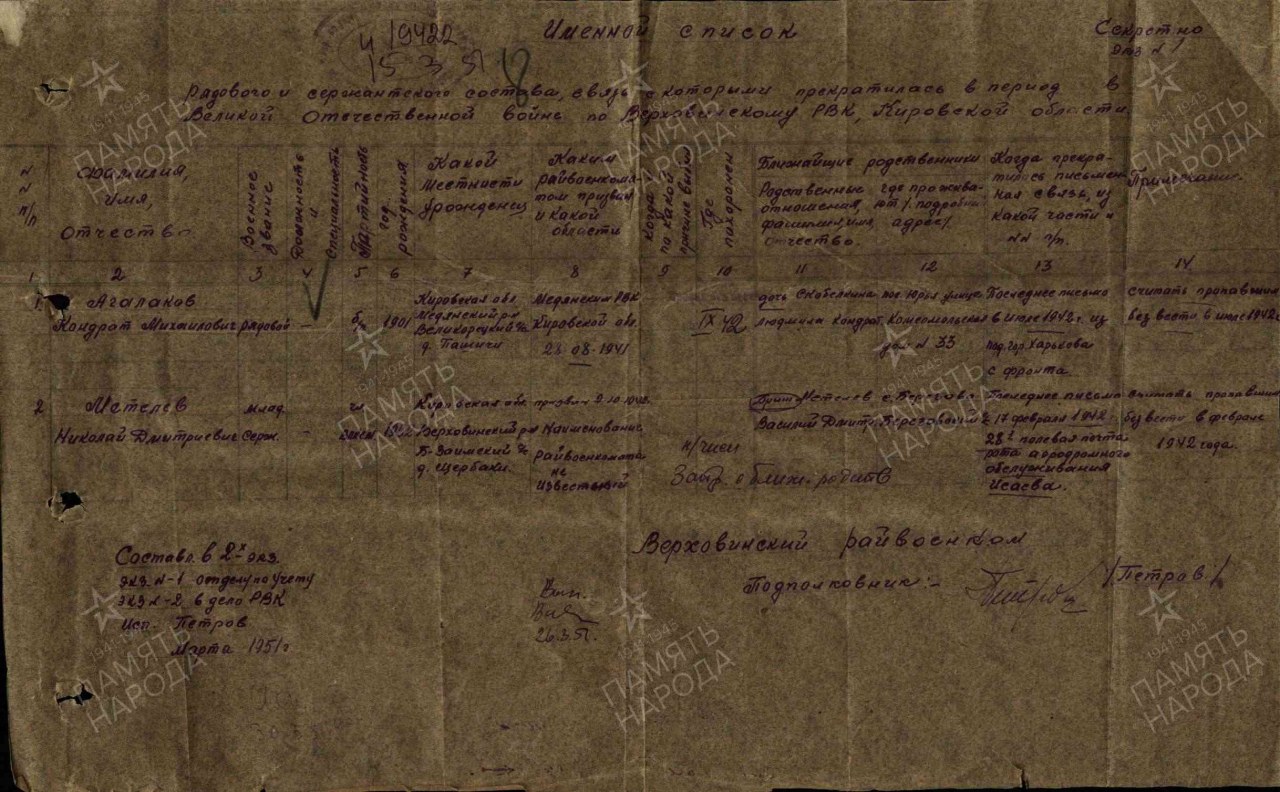 Именной список
Секретно
экз N 1
и 19422
15 3 51
рядового и сержантского состава, связь с которыми прекратилась в период в
Великой Отечественной войне по Верховинскому РВК, Кировской области.
N N п/п
Фамилия, имя, отчество.
Военное звание
Должность и специальность
Партийность
год рождения
Какой местности урожденец
Каким райвоенкома-
том призван и какой области
Когда и по какой причине выбыл
Где похоронен
Ближайшие родственники
Родственные отношения, фамилия, имя, отчество.
где прожива-
ют /подробный адрес/
Когда прекра-
тилась письмен-
ная связь, из какой части и NN п/п.
Примечание.
1 2 3 4 5 6 7 8 9 10 11 12 13 14
1.
Агалаков
Кондрат Михайлович
рядовой
–
б/п
1901
Кировская обл.
Медянский р-н
Великорецкий с/с
д. Пашичи
Медянским РВК
Кировской обл.
28-08-1941
IX 42
дочь Скобелкина
Людмила Кондрат.
пос. Юрья улица
Комсомольская
дом N 33
Последнее письмо
в июле 1942 г. из
под гор. Харькова
с фронта.
считать пропавшим
без вести в июле 1942 г.
2
Метелев
Николай Дмитриевич
млад.
серж.
–
чл.
1922
Кировская обл.
Верховинский р-н
Б-Заимский с/с
д. Щербаки.
призван 9.10.1940
Наименование
Райвоенкомата
не
известный
п/член
брат Метелев
Василий Дмитр.
Последнее письмо
17 февраля 1942 г.
28 полевая почта
рота аэродромного
обслуживания
Исаева.
считать пропавшим
без вести в феврале
1942 года.
Верховинский райвоенком
Подполковник:-
/Петров/
Состав. в 2-х экз.
экз N-1 отделу по учету
экз N-2 в дело РВК
Исп. Петров
Марта 1951 г
26.3.51.
1941-1945
ПАМЯТЬ
НАРОДА